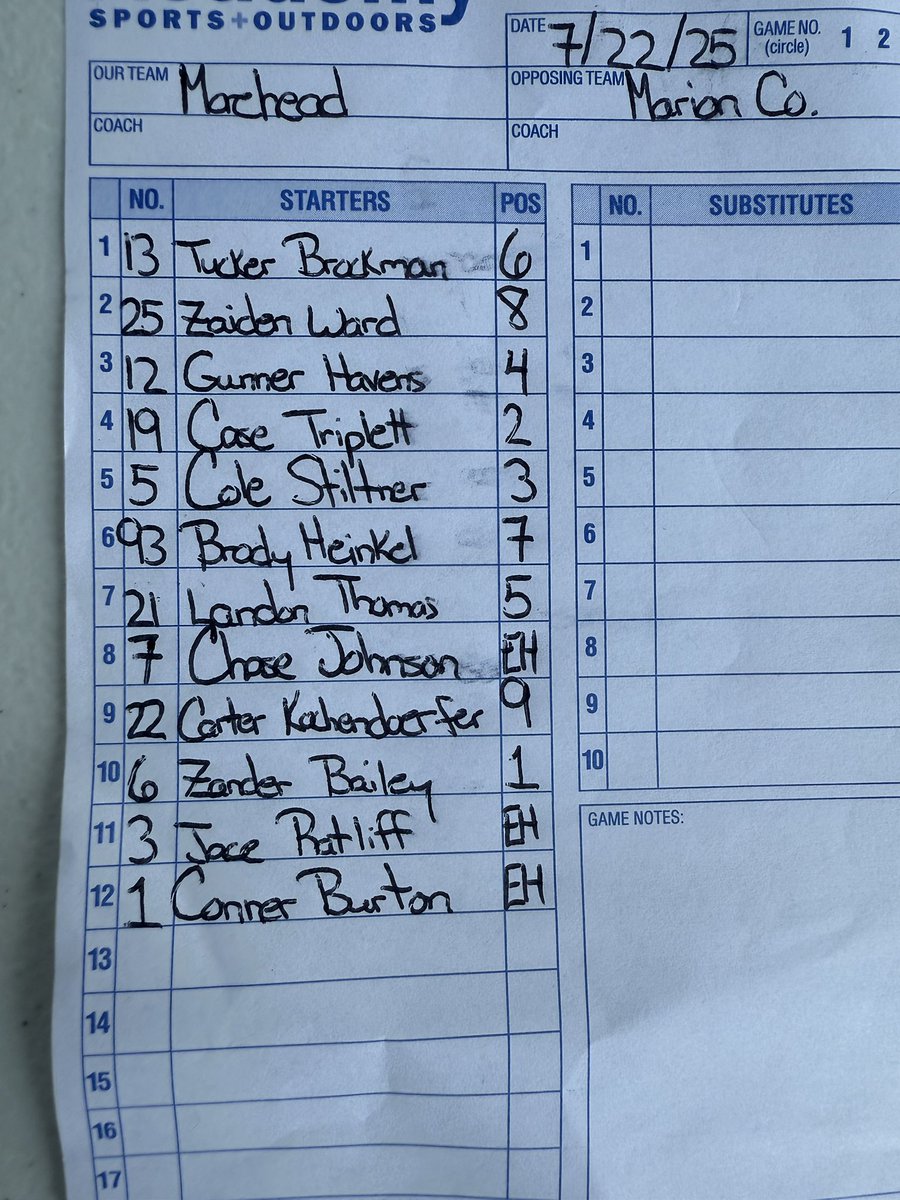 SPORTS+OUTDOORS
DATE 7/22/25 GAME NO. (circle) 1 2
OUR TEAM Morehead OPPOSING TEAM Marion Co.
COACH COACH
NO. STARTERS POS NO. SUBSTITUTES
1 13 Tucker Brockman 6 1
2 25 Zaiden Ward 8 2
3 12 Gunner Havens 4 3
4 19 Case Triplett 2 4
5 5 Cole Stiltner 3 5
6 93 Brady Heinkel 7 6
7 21 Landon Thomas 5 7
8 7 Chase Johnson EH 8
9 22 Carter Kochendoerfer 9 9
10 6 Zander Bailey 1 10
11 3 Jace Ratliff EH GAME NOTES:
12 1 Conner Burton EH
13
14
15
16
17